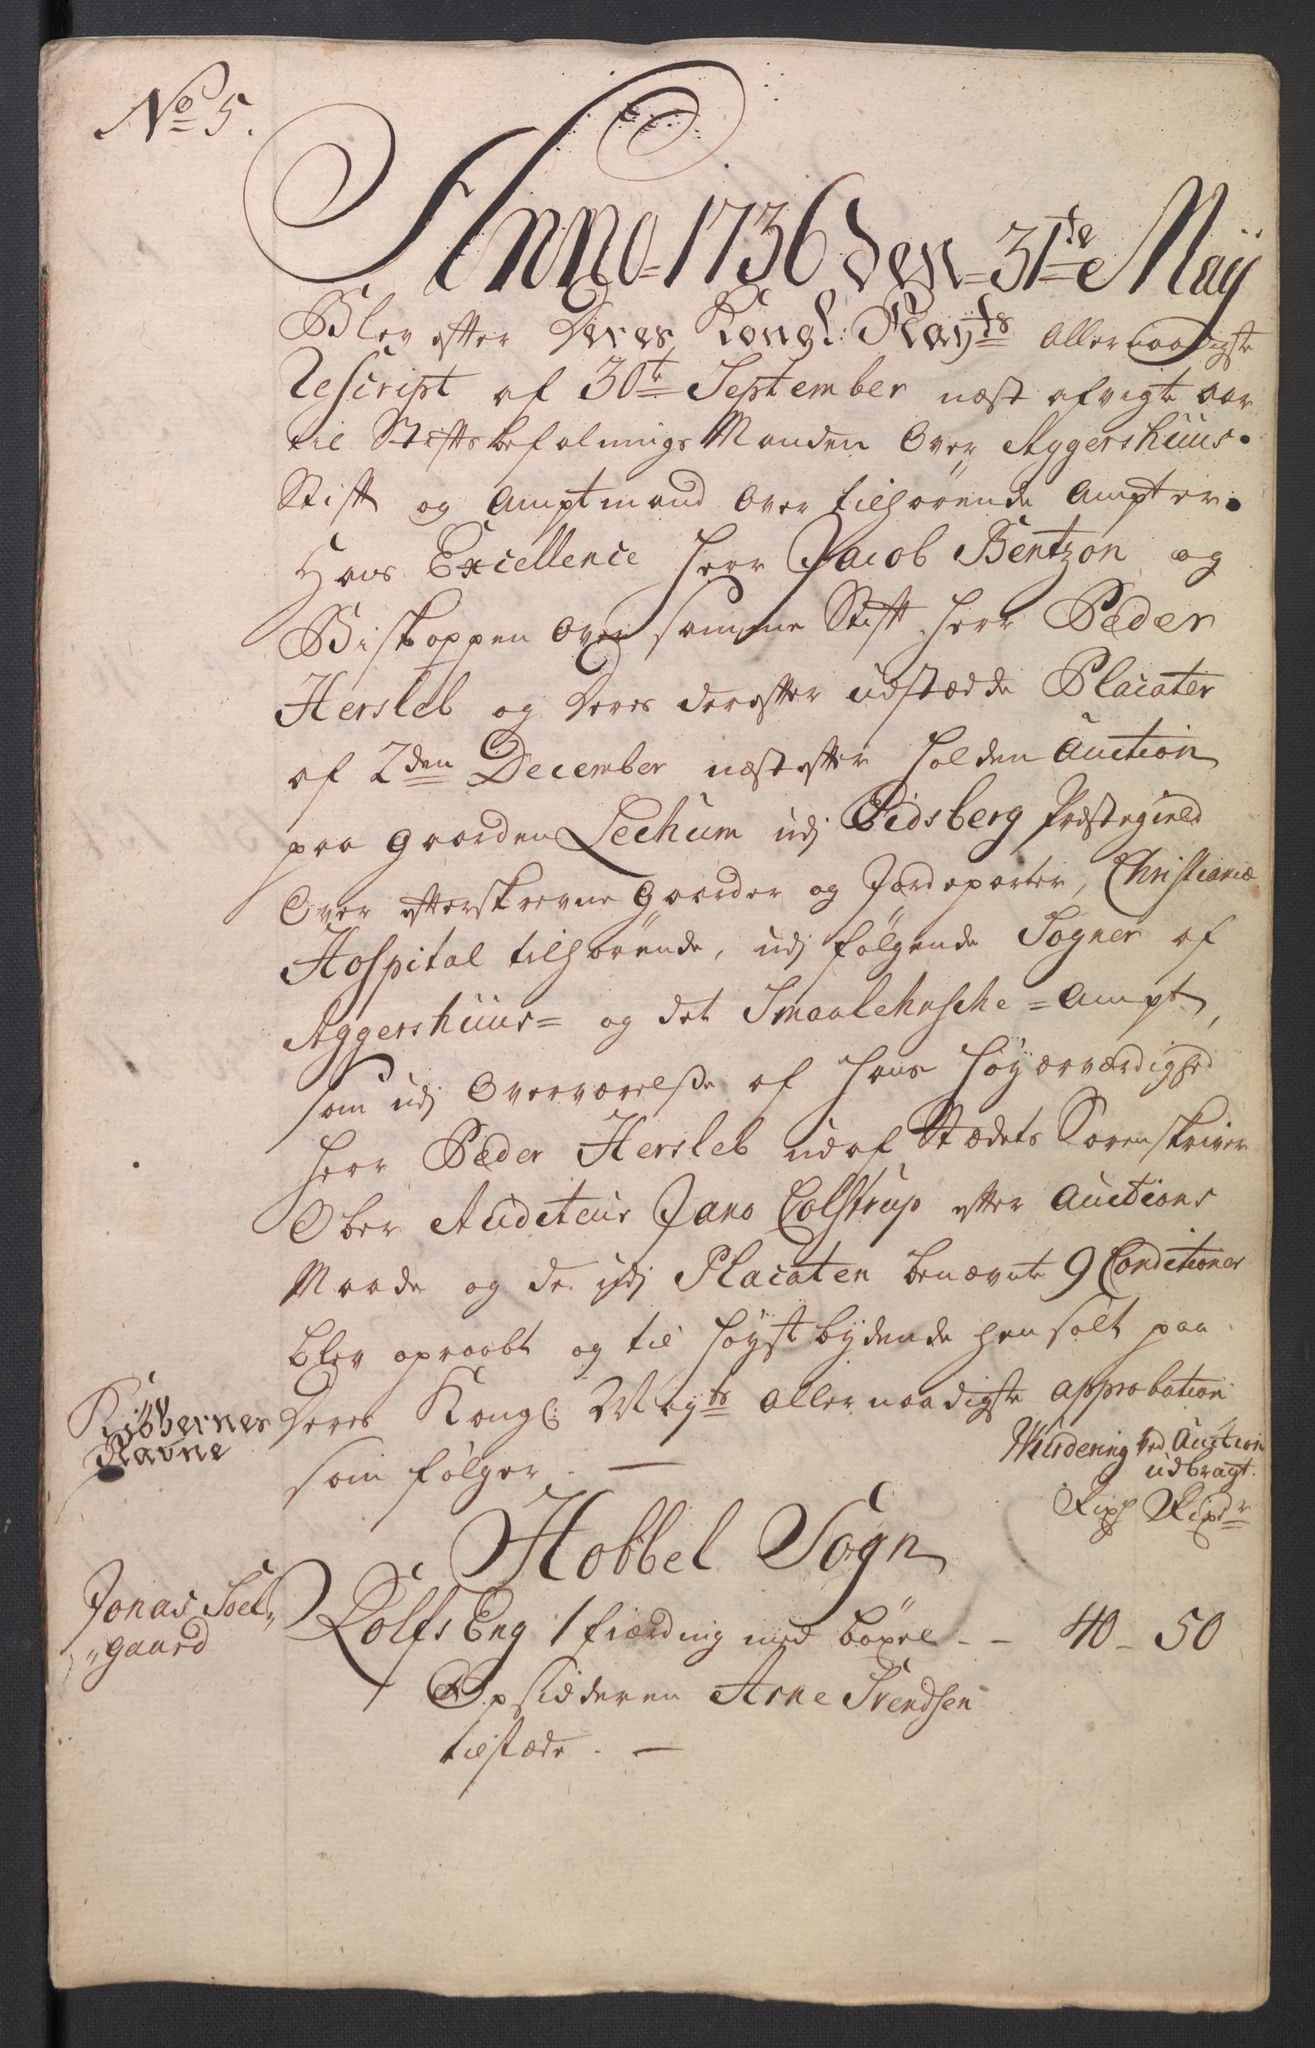 No 5.
Anno 1736 den 31te Maij
Blev efter Deres Kongl: Mayts Allernaadigste
Rescript af 30te September næst afvigte aar
til Stiftsbefalnings Manden Over Aggershuus
Stift og Amptmand Over tilhörende Ampter
Hans Excellence Herr Jacob Bentzon og
Biskoppen Over samme Stift Herr Peder
Hersleb og Deres derefter udstædde Placater
af 2den December næstefter holden Auction
paa gaarden Leehum udj Eidsberg Præstegield
Over efterskrevne gaarder og Jordeparter, Christianiæ
Hospital tilhörende, udj fölgende Sogner af
Aggershuus= og det Smaalehnsche=Ampt,
som udj Overværelsse af Hans Höyærværdighed
Herr Peder Hersleb udaf Stædets Sorenskriver
Ober Auditeur Jano Colstrup efter Auctions
Maade og de udj Placaten benævnte 9 Conditioner
blev opraabt og til höystbydende hensolt paa
Deres Kongl: Mayts Allernaadigste approbation
som fölger. —
Kiöbernes
Navne
Wurdering Ved Auction
udbragt.
Rixd Rixdr
Hobbel Sogn
Jonas Soel-
-gaard
Rolfs Eng 1 fiærding med böxel - - 40 - 50
Opsidderen Arne Svendsen
tilstæde. —